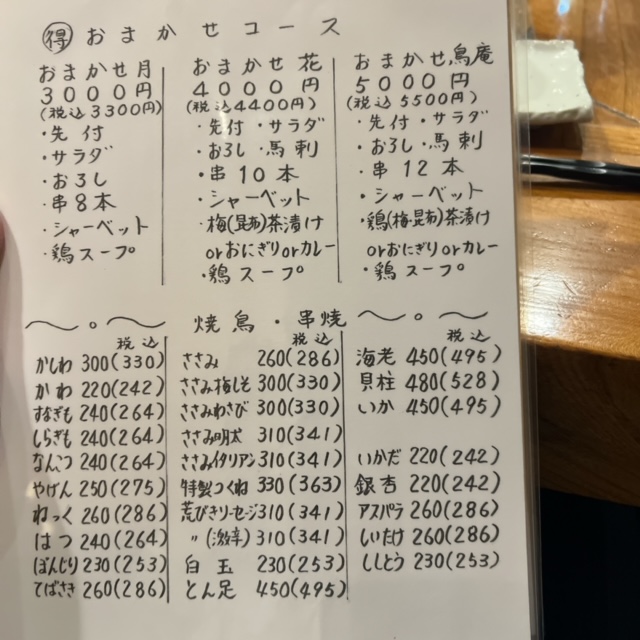 得 おまかせコース
おまかせ月
3000円
(税込3300円)
・先付
・サラダ
・おろし
・串8本
・シャーベット
・鶏スープ
おまかせ花
4000円
(税込4400円)
・先付・サラダ
・おろし・馬刺
・串10本
・シャーベット
・梅(昆布)茶漬け
orおにぎりorカレー
・鶏スープ
おまかせ鳥庵
5000円
(税込5500円)
・先付・サラダ
・おろし・馬刺
・串12本
・シャーベット
・鶏(梅・昆布)茶漬け
orおにぎりorカレー
・鶏スープ
焼鳥・串焼
税込
かしわ 300(330)
かわ 220(242)
すなぎも 240(264)
しらぎも 240(264)
なんこつ 240(264)
やげん 250(275)
ねっく 260(286)
はつ 240(264)
ぼんじり 230(253)
てばさき 260(286)
税込
ささみ 260(286)
ささみ梅しそ 300(330)
ささみわさび 300(330)
ささみ明太 310(341)
ささみイタリアン 310(341)
特製つくね 330(363)
荒びきソーセージ 310(341)
〃(激辛) 310(341)
白玉 230(253)
とん足 450(495)
税込
海老 450(495)
貝柱 480(528)
いか 450(495)
いかだ 220(242)
銀杏 220(242)
アスパラ 260(286)
しいたけ 260(286)
ししとう 230(253)